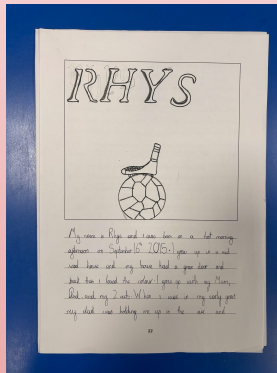 RHYS
My name is Rhys and I was born on a hot morning
afternoon on September 16th 2015. I grew up in a red
road house and my house had a green door and
back then I loved the colour. I grew up with my Mum,
Dad and my 2 cats. When I was in my early years
my dad was holding me up in the air and